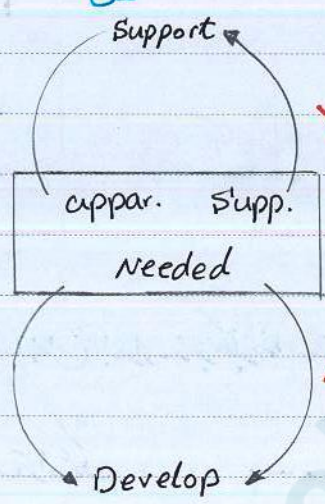 Support
appar. Supp.
Needed
Develop